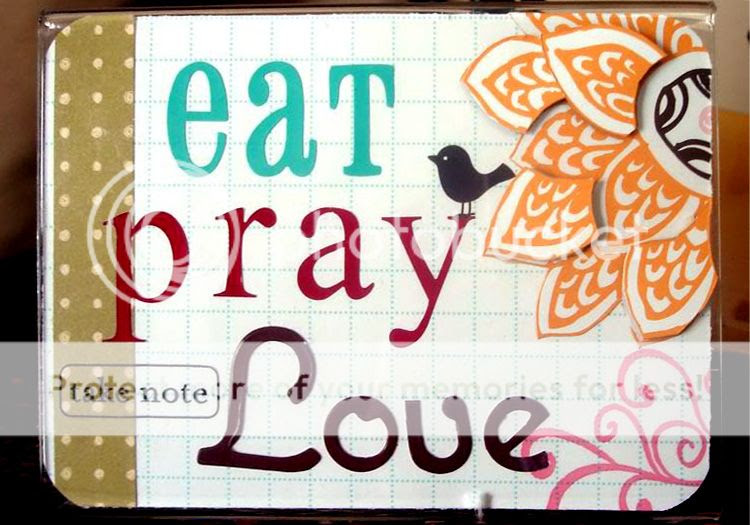 eat
pray
photobucket
Love
Protect more of your memories for less!
take note